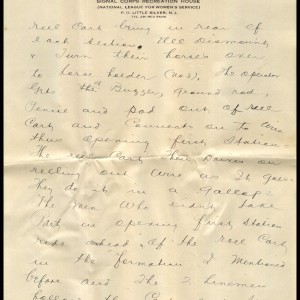 SIGNAL CORPS RECREATION HOUSE
(NATIONAL LEAGUE FOR WOMEN'S SERVICE)
P.O. LITTLE SILVER, N.J.
reel Cart bring in rear of
each section. All Dismount
& Turn their horses over
to horse holder (No3), the operator
gets the Buzzer, ground rod,
Pencil and Pad out of reel
Cart and Connects on to wire
thus opening first station
The reel Cart then Drives on
reeling out wire as It goes
They do it in a Gallop
The men who didn't take
Part in opening first station
ride ahead of the reel Cart
in the formation I mentioned
before and The 2 linemen
follow the Cart